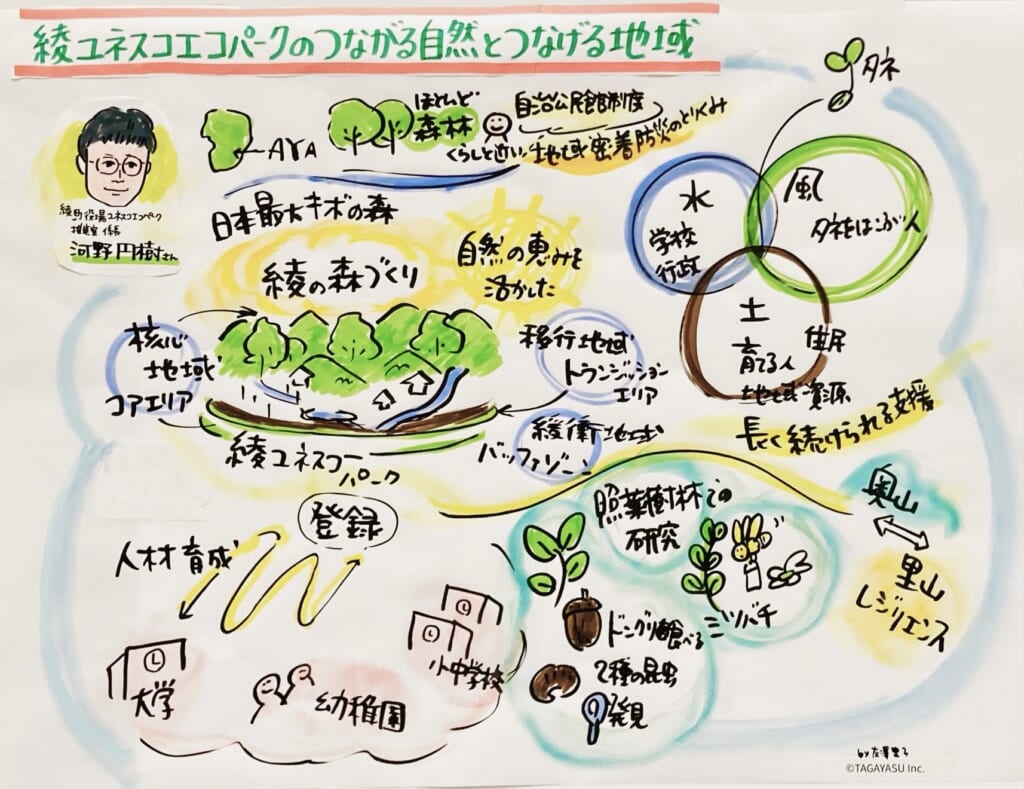 綾ユネスコエコパークのつながる自然とつなげる地域
綾町役場ユネスコエコパーク
推進室 係長
河野円樹さん
AYA
ほとんど
森林
くらしと近い
自治公民館制度
地域密着防災のとりくみ
日本最大キボの森
綾の森づくり
自然の恵みを
活かした
核心
地域
コアエリア
移行地域
トランジッション
エリア
緩衝地域
バッファゾーン
綾ユネスコー
パーク
タネ
水
学校
行政
風
タネをはこぶ人
土
育てる人
住民
地域資源
長く続けられる支援
登録
人材育成
大学
幼稚園
小中学校
照葉樹林での
研究
ミツバチ
ドングリ食べる
2種の昆虫
発見
奥山
里山
レジリエンス
©TAGAYASU Inc.